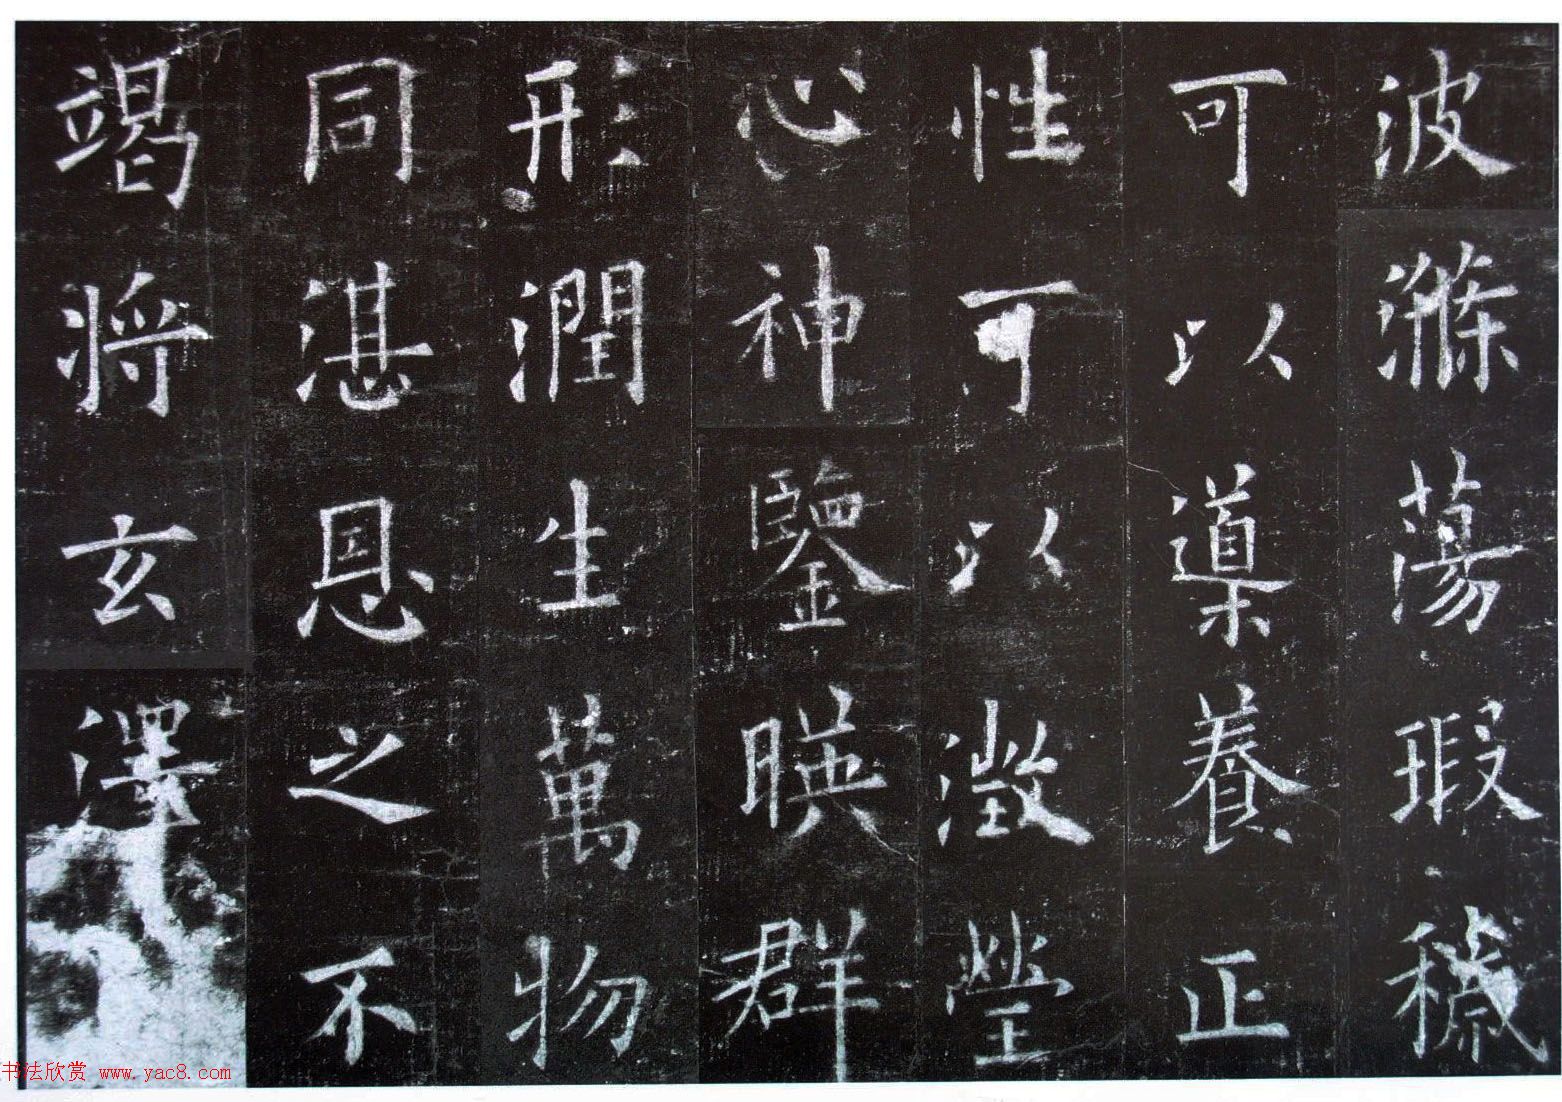 波滌蕩瑕穢
可以導養正
性可以澂瑩
心神鑒暎群
形潤生萬物
同湛恩之不
竭将玄澤
书法欣赏 www.yac8.com